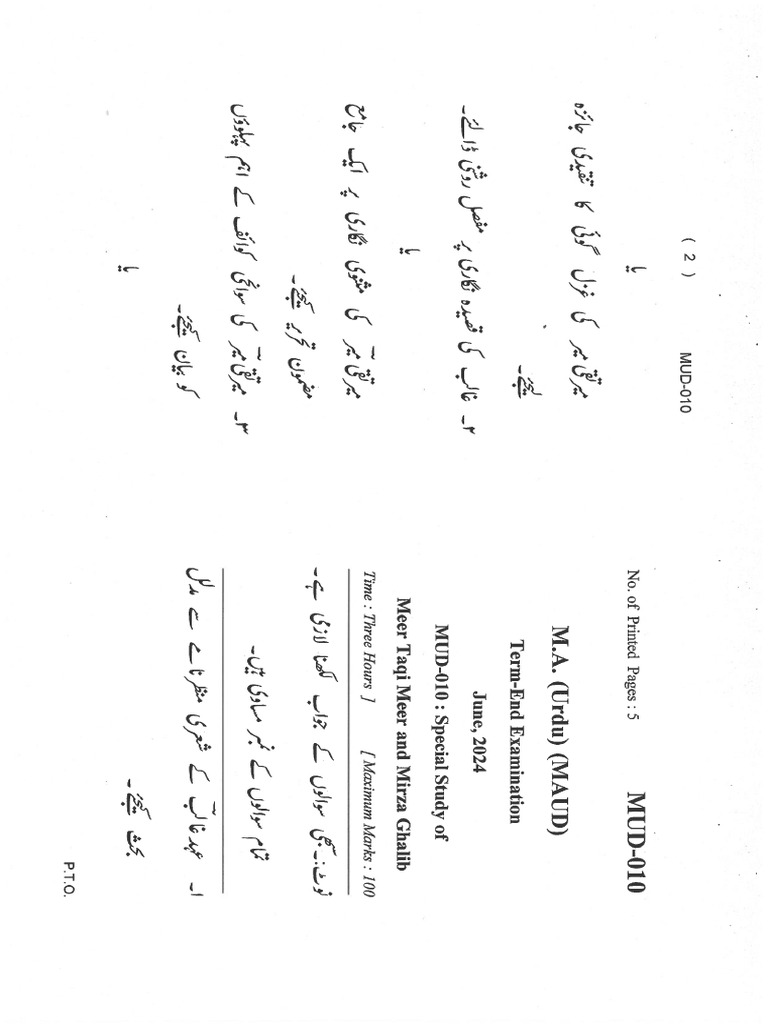 No. of Printed Pages : 5 MUD-010
M.A. (Urdu) (MAUD)
Term-End Examination
June, 2024
MUD-010 : Special Study of
Meer Taqi Meer and Mirza Ghalib
Time : Three Hours ] [ Maximum Marks : 100
نوٹ:۔ سبھی سوالوں کے جواب لکھنا لازمی ہے۔
تمام سوالوں کے نمبر مساوی ہیں۔
۱۔ عہد غالبؔ کے شعری منظرنامے سے مدلل
بحث کیجئے۔
P.T.O.
( 2 ) MUD-010
یا
میر تقی میر کی غزل گوئی کا تنقیدی جائزہ
لیجئے۔
۲۔ غالب کی قصیدہ نگاری پر مفصل روشنی ڈالئے۔
یا
میر تقی میرؔ کی مثنوی نگاری پر ایک جامع
مضمون تحریر کیجئے۔
۳۔ میر تقی میرؔ کی سوانحی کوائف کے اہم پہلوؤں
کو بیان کیجئے۔
یا